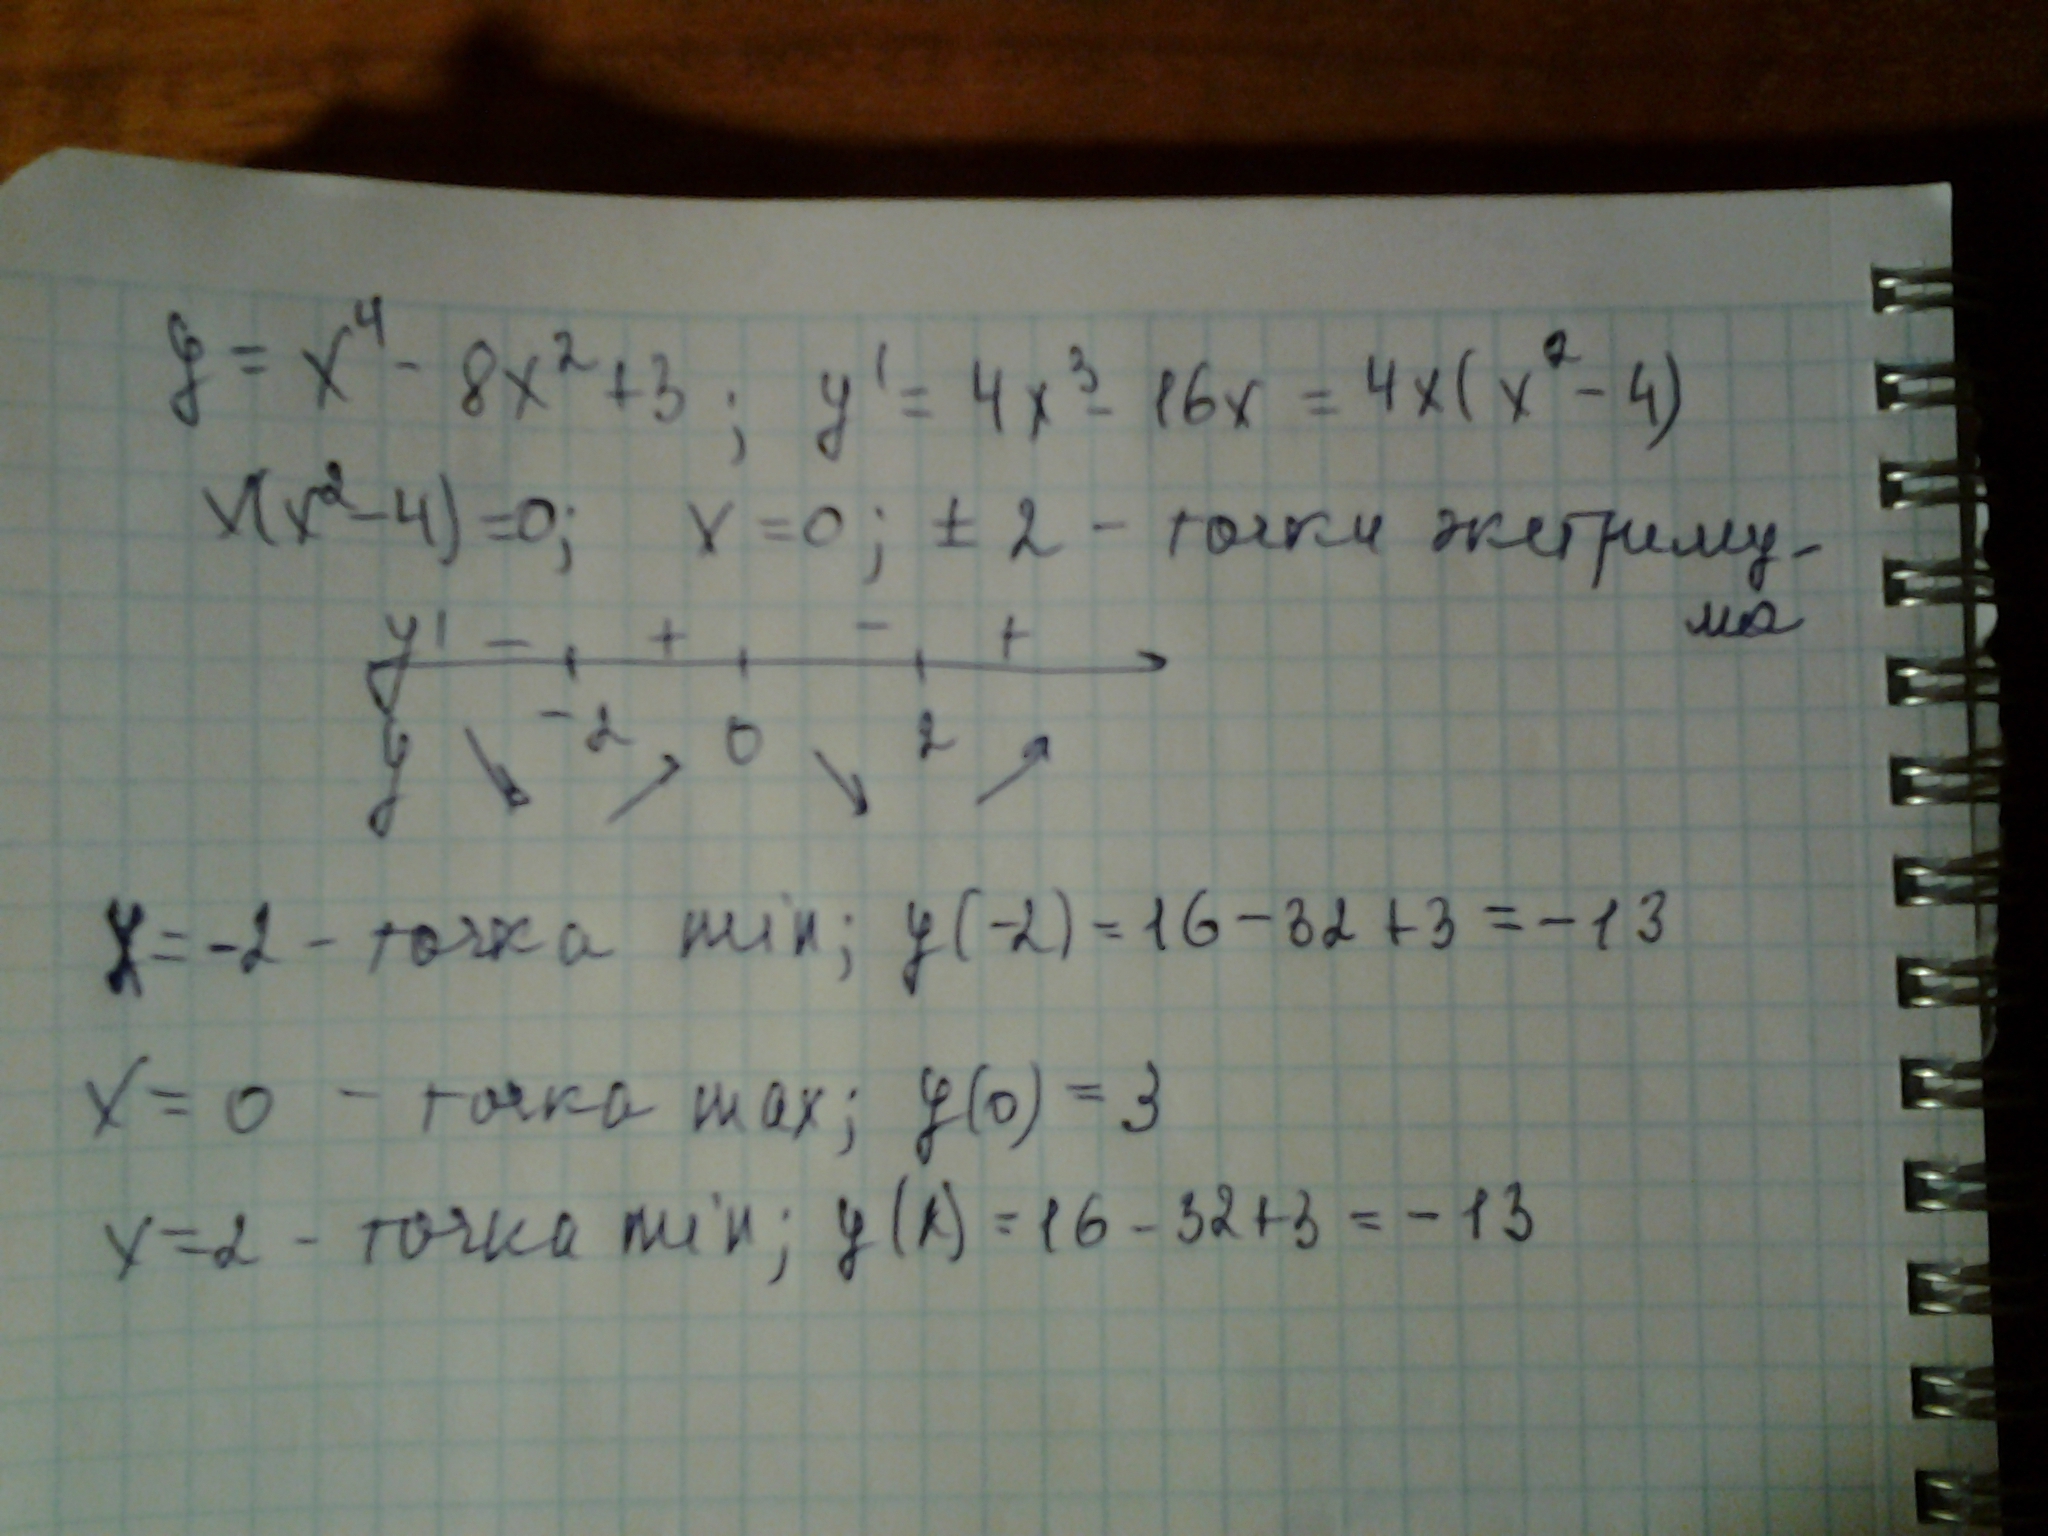 y = x⁴ - 8x² + 3 ; y' = 4x³ - 16x = 4x(x² - 4)
x(x² - 4) = 0; x = 0 ; ± 2 - точки экстриму-
ма
y' - + - +
-2 0 2
y ↘ ↗ ↘ ↗
x = -2 - точка min; y(-2) = 16 - 32 + 3 = -13
x = 0 - точка max; y(0) = 3
x = 2 - точка min; y(2) = 16 - 32 + 3 = -13